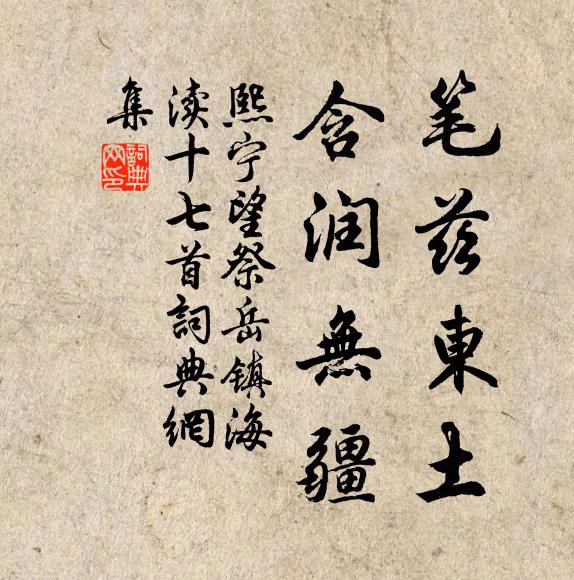 笔兹東土
含润無疆
熙宁望祭岳镇海
渎十七首詞典網
集
詞典
网印